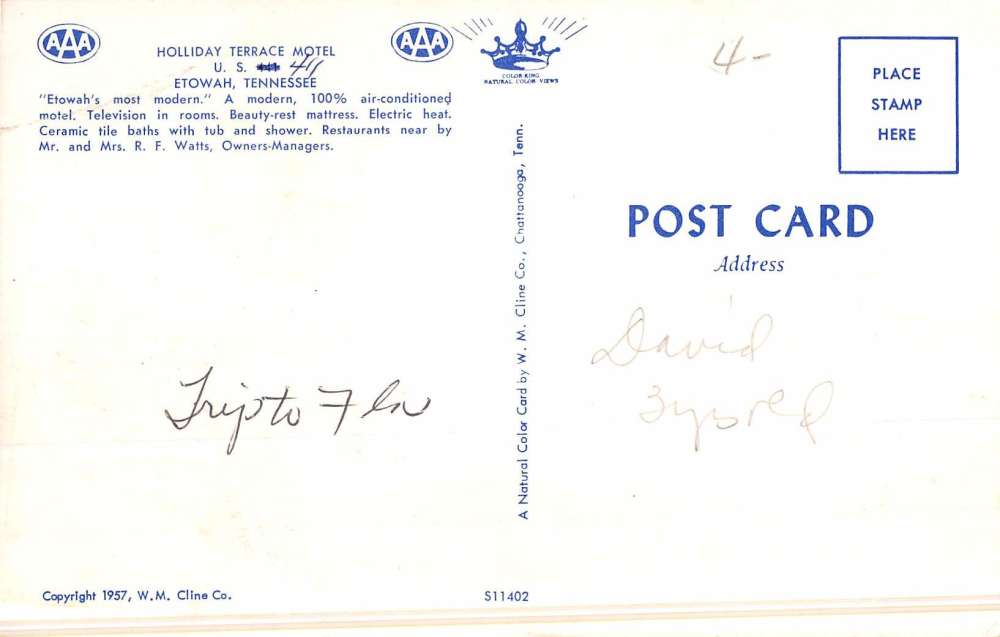 AAA
HOLLIDAY TERRACE MOTEL
U. S. 411
ETOWAH, TENNESSEE
"Etowah's most modern." A modern, 100% air-conditioned
motel. Television in rooms. Beauty-rest mattress. Electric heat.
Ceramic tile baths with tub and shower. Restaurants near by
Mr. and Mrs. R. F. Watts, Owners-Managers.
AAA
COLOR KING
NATURAL COLOR VIEWS
4-
PLACE
STAMP
HERE
A Natural Color Card by W. M. Cline Co., Chattanooga, Tenn.
POST CARD
Address
David
Trip to Fla
Copyright 1957, W.M. Cline Co.
S11402